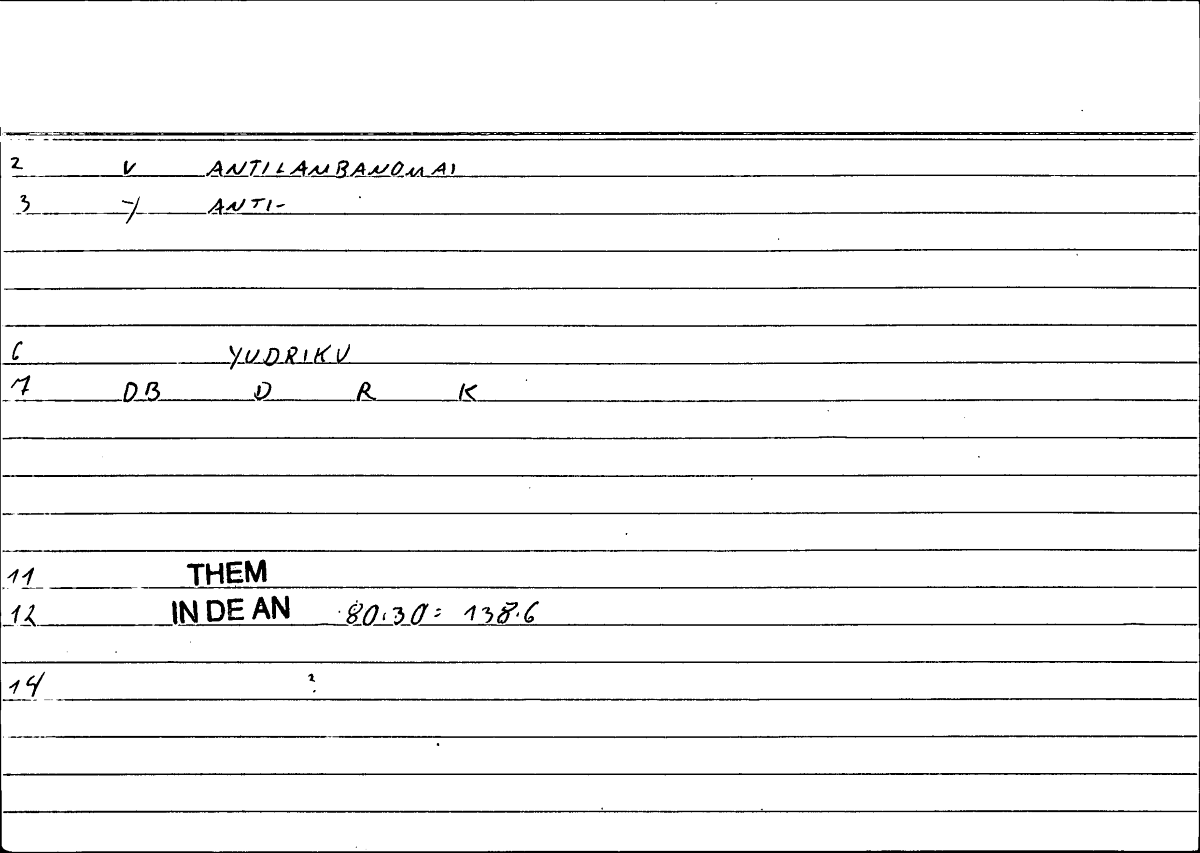 2 V ANTILAMBANOMAI
3 -/ ANTI-
6 YUDRIKU
7 DB D R K
11 THEM
12 IN DE AN 80.30 = 138.6
14 ?